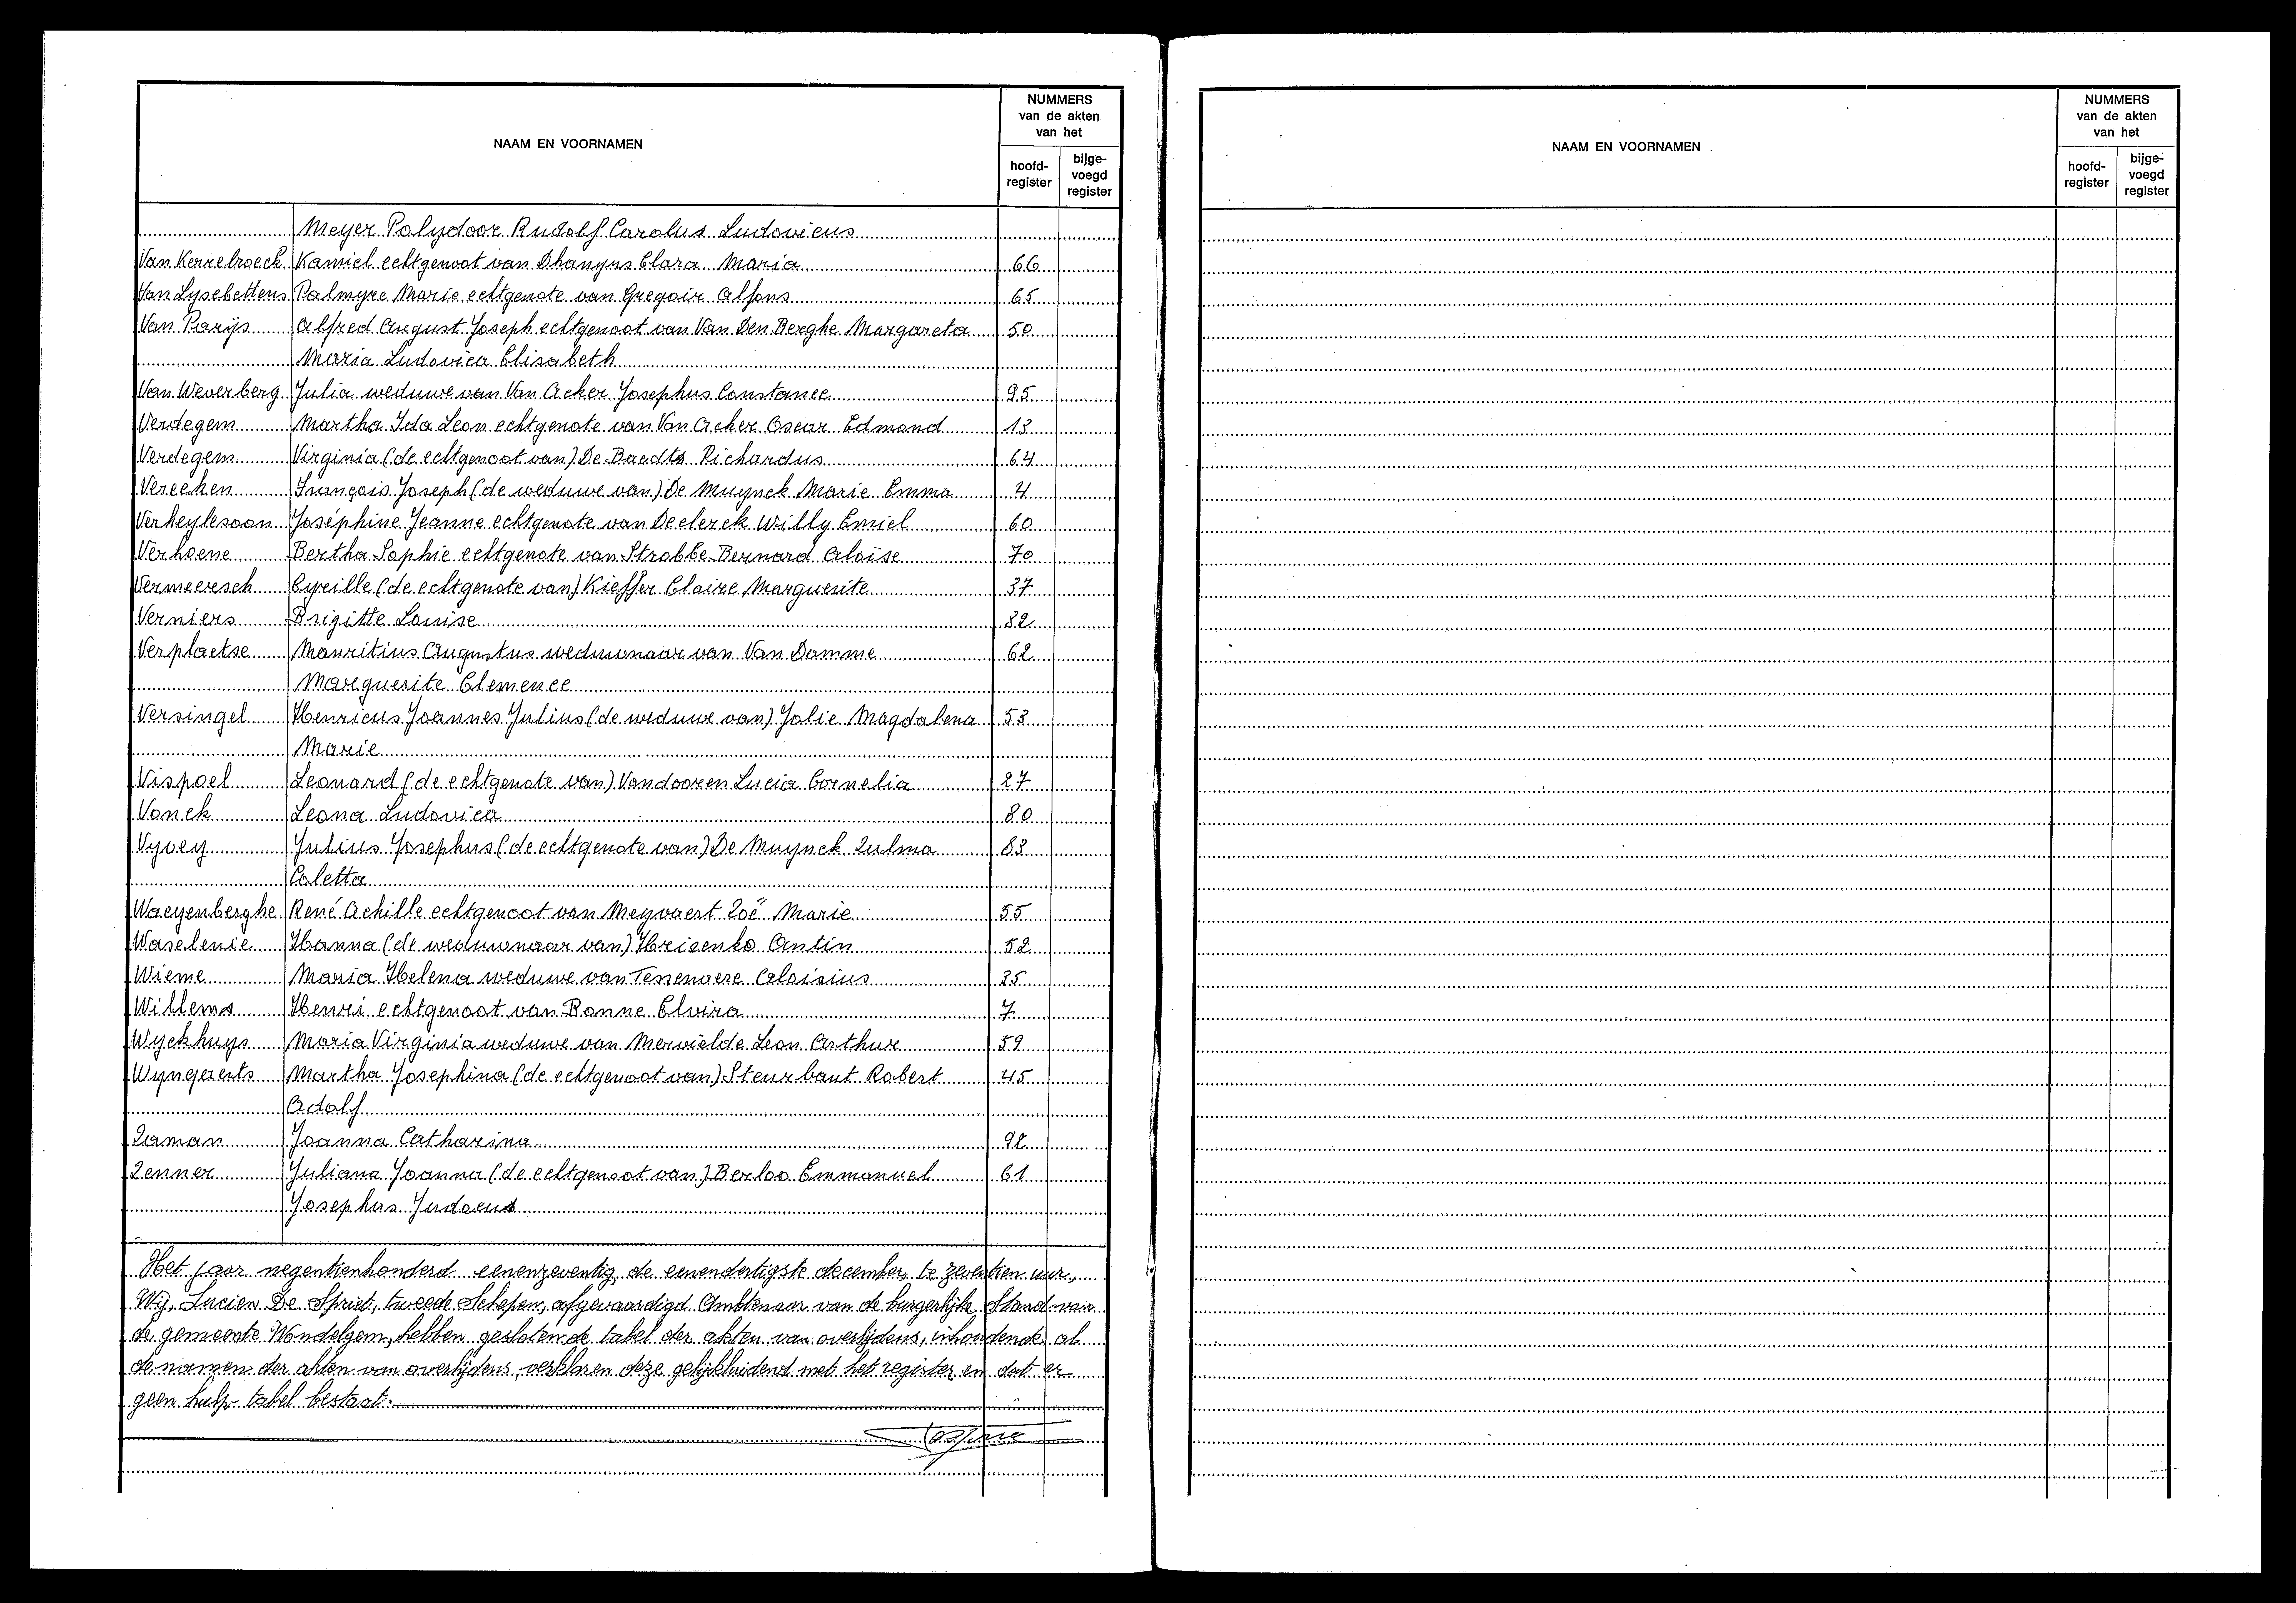 NAAM EN VOORNAMEN
NUMMERS
van de akten
van het
hoofd-
register
bijge-
voegd
register
Meyer Polydoor Rudolf Carolus Ludovicus
Van Kerrebroeck Kamiel echtgenoot van Dhanyns Clara Maria 66
Van Lysebettens Palmyre Marie echtgenote van Gregoir Alfons 65
Van Parijs Alfred August Joseph echtgenoot van Van Den Berghe Margareta 50
Maria Ludovica Elisabeth
Van Weverberg Julia weduwe van Van Acker Josephus Constance 95
Verdegem Martha Ida Leon echtgenote van Van Acker Oscar Edmond 13
Verdegem Virginia (de echtgenoot van) De Baedts Richardus 64
Vereeken François Joseph (de weduwe van) De Muynck Marie Emma 4
Verheylesoon Joséphine Jeanne echtgenote van Declerck Willy Emiel 60
Verhoene Bertha Sophie echtgenote van Strobbe Bernard Aloïse 70
Vermeersch Cyrille (de echtgenote van) Kieffer Claire Marguerite 37
Verniers Brigitte Louise 82
Verplaetse Mauritius Augustus weduwnaar van Van Damme 62
Marguerite Clemence
Versingel Henricus Joannes Julius (de weduwe van) Jolie Magdalena 53
Marie
Vispoel Leonard (de echtgenote van) Vandooren Lucia Cornelia 27
Vonck Leona Ludovica 80
Vyvey Julius Josephus (de echtgenote van) De Muynck Zulma 83
Coletta
Waeyenberghe René Achille echtgenoot van Meyvaert Zoë Marie 55
Waselenie Hanna (de weduwnaar van) Hricenko Antin 52
Wieme Maria Helena weduwe van Tessenaere Aloisius 35
Willems Henri echtgenoot van Bonne Elvira 7
Wyckhuys Maria Virginia weduwe van Mervielde Leon Arthur 59
Wyngaerts Martha Josephina (de echtgenoot van) Steurbaut Robert 45
Adolf
Zaman Joanna Catharina 92
Zenner Juliana Joanna (de echtgenoot van) Berloo Emmanuel 61
Josephus Judocus
Het jaar negentienhonderd eenenzeventig, de eenendertigste december, te zeventien uur,
Wij, Lucien De Spriet, tweede Schepen, afgevaardigd Ambtenaar van de burgerlijke Stand van
de gemeente Wondelgem, hebben gesloten de tabel der akten van overlijdens, inhoudende al
de namen der akten van overlijdens, verklaren deze gelijkluidend met het register en dat er
geen hulp-tabel bestaat.
NAAM EN VOORNAMEN
NUMMERS
van de akten
van het
hoofd-
register
bijge-
voegd
register